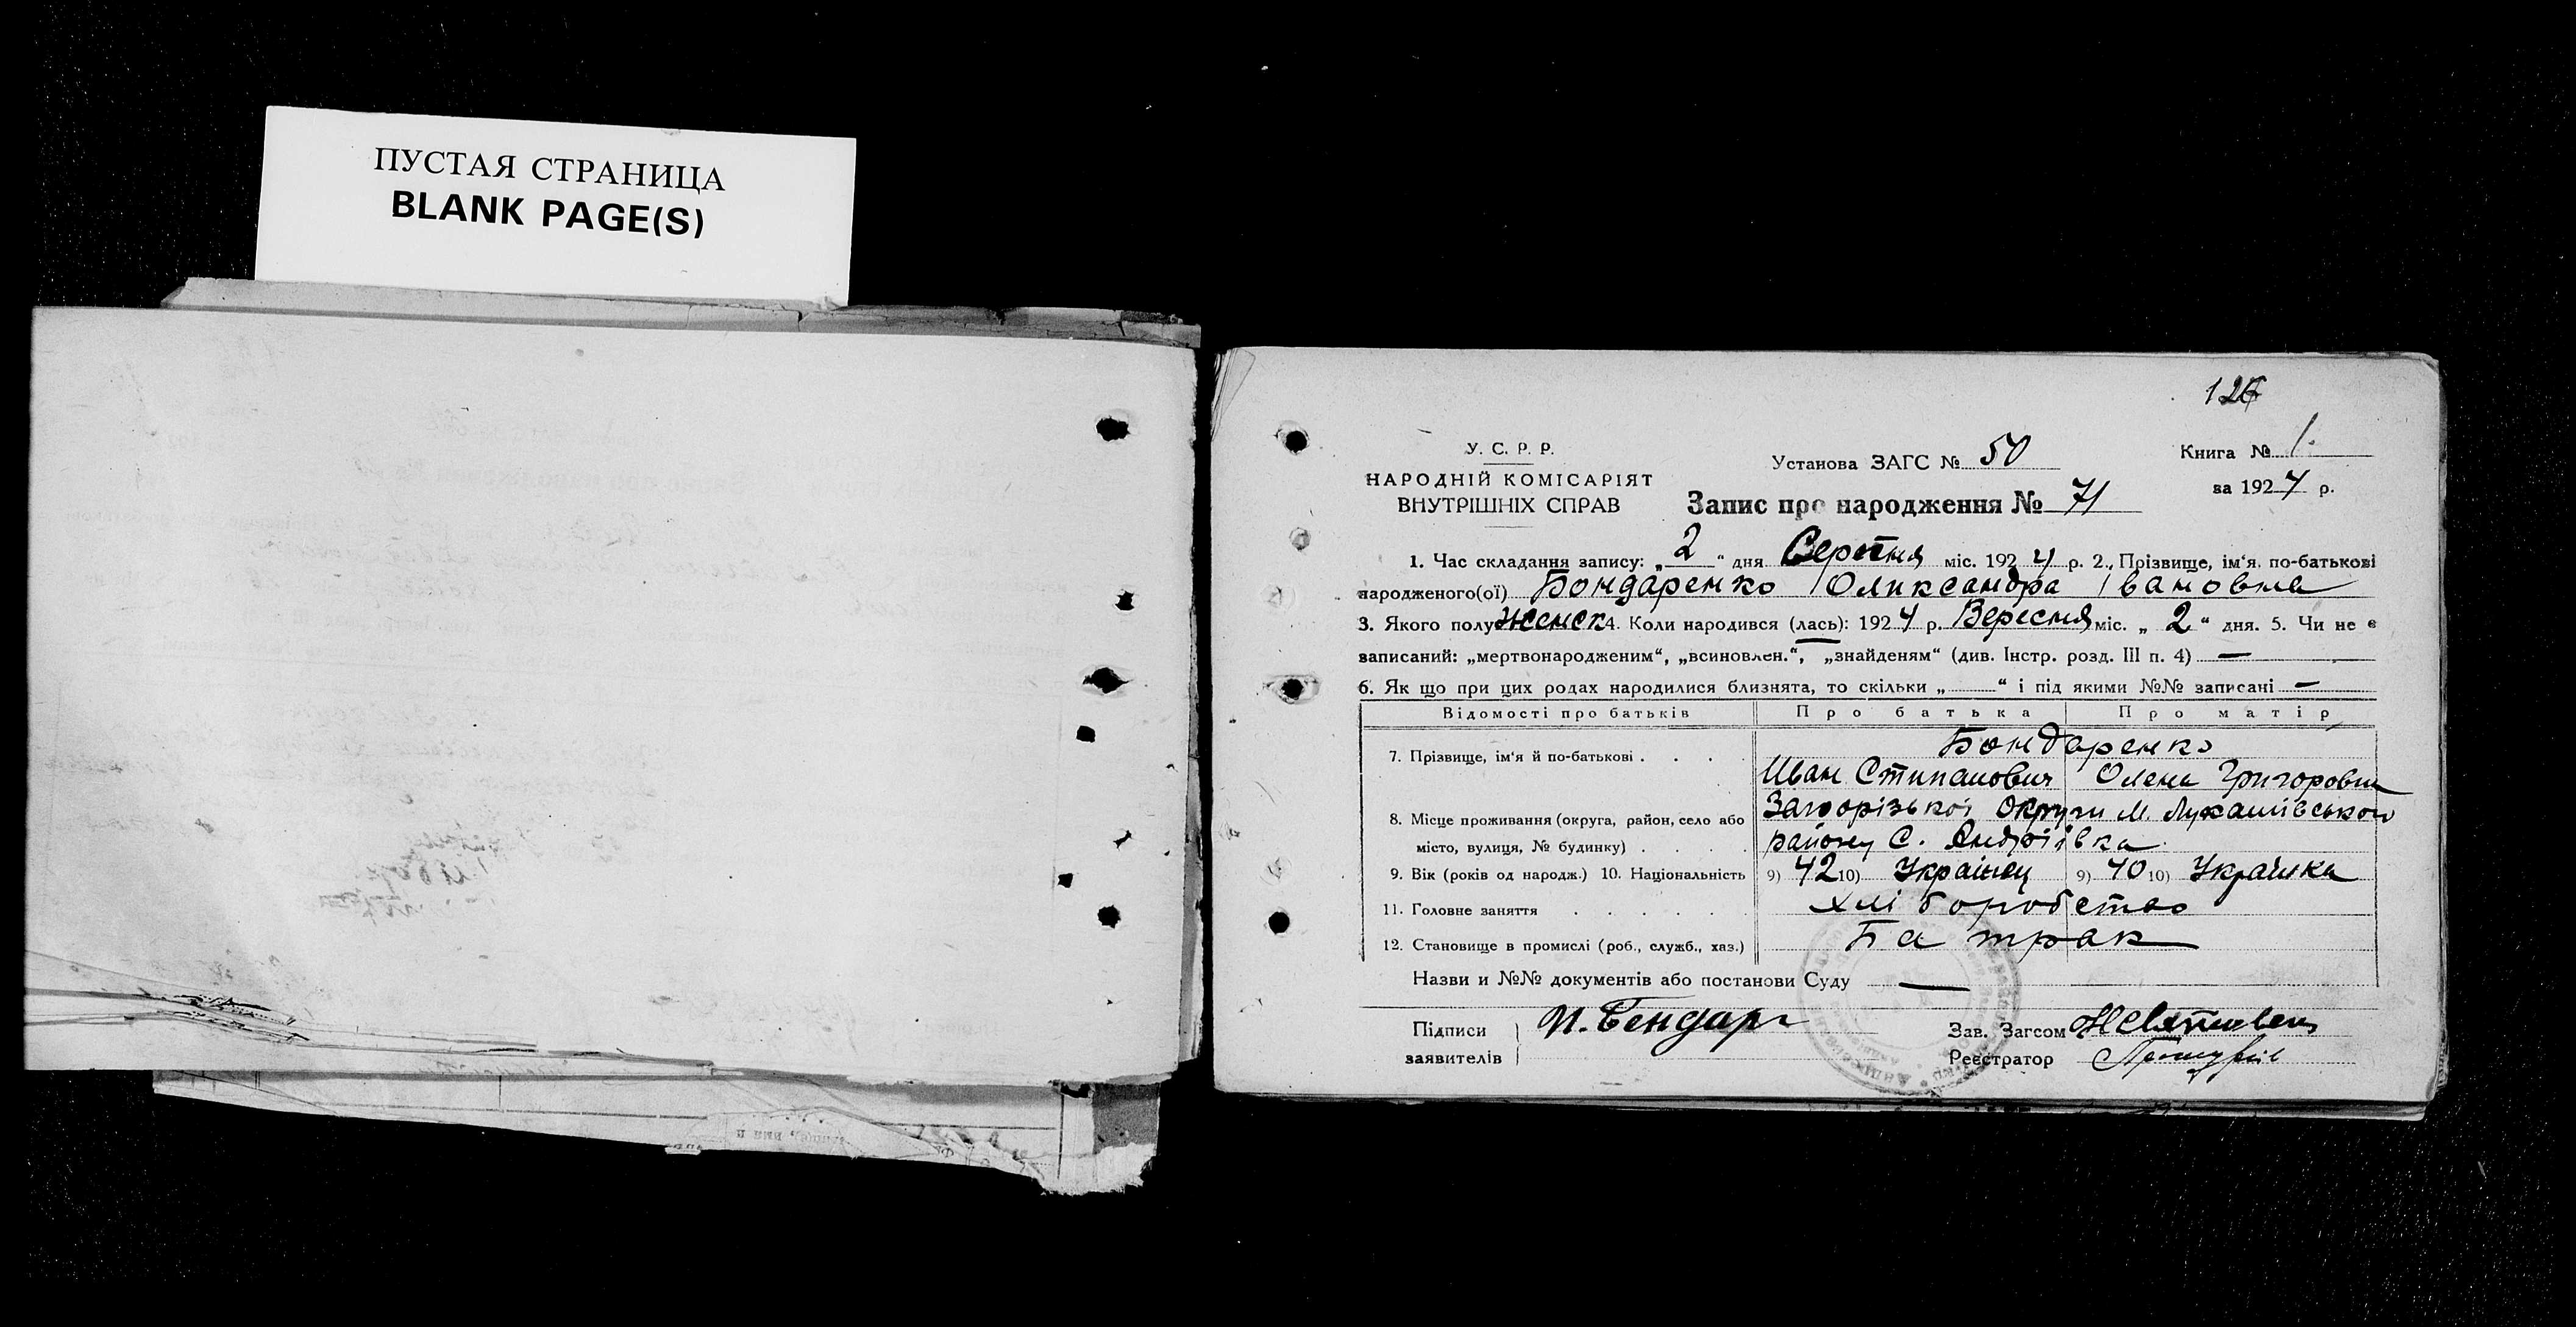 ПУСТАЯ СТРАНИЦА
BLANK PAGE(S)
126
У. С. Р. Р.
НАРОДНІЙ КОМІСАРІЯТ
ВНУТРІШНІХ СПРАВ
Установа ЗАГС № 50
Книга № 1.
за 1924 р.
Запис про народження № 71
1. Час складання запису: „2“ дня Серпня міс. 1924 р. 2. Прізвище, ім‘я, по-батькові
народженого(ої) Бондаренко Олександра Івановна
3. Якого полу Женск 4. Коли народився (лась): 1924 р. Вересня міс. „2“ дня. 5. Чи не є
записаний: „мертвонародженим“, „всиновлен.“, „знайденям“ (див. Інстр. розд. III п. 4) —
6. Як що при цих родах народилися близнята, то скільки „ “ і під якими №№ записані —
Відомості про батьків Про батька Про матір
Бондаренко
7. Прізвище, ім‘я й по-батькові . . . . Иван Стипанович Олена Григоровна
8. Місце проживання (округа, район, село або Запорізької Округи М. Лукашівського
місто, вулиця, № будинку) . . . . району С. Андріївка
9. Вік (років од народж.) 10. Національність 9) 42 10) Українец 9) 40 10) Українка
11. Головне заняття . . . . . . Хліборобство
12. Становище в промислі (роб., служб., хаз.) Батрак
Назви и №№ документів або постанови Суду —
Підписи И. Бендар
заявителів
Зав. Загсом
Реєстратор